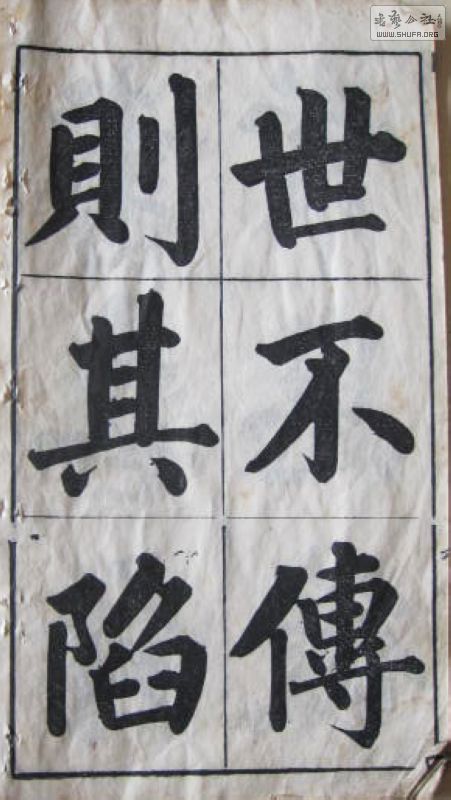 世不傳
則其陷
書藝公社
WWW.SHUFA.ORG